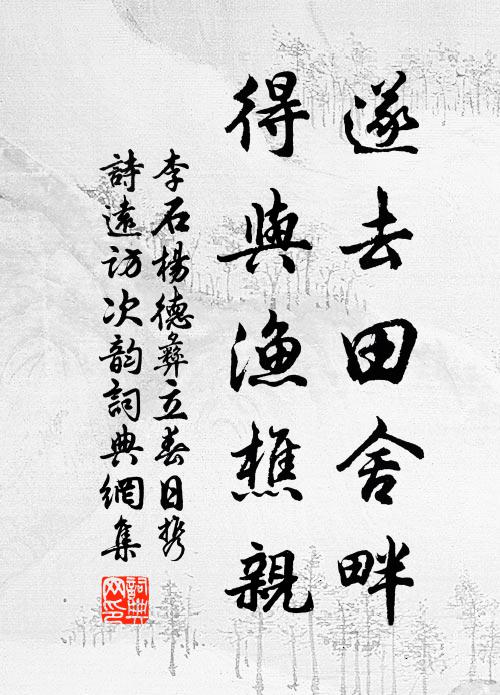 遂去田舍畔
得與漁樵親
李石楊德彝立春日携
詩遠訪次韵詞典網集